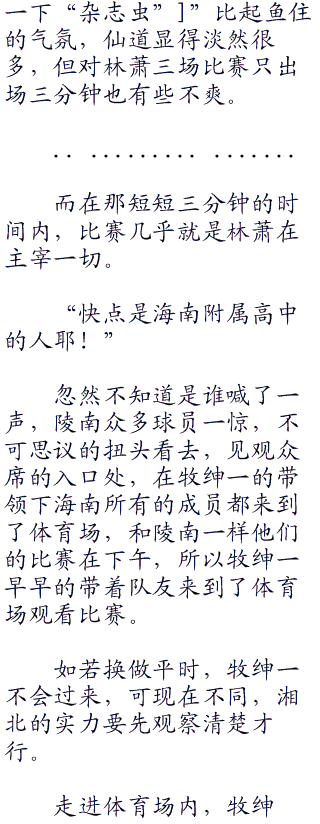 一下“杂志虫”]”比起鱼住
的气氛，仙道显得淡然很
多，但对林萧三场比赛只出
场三分钟也有些不爽。
.. .......... .......
而在那短短三分钟的时
间内，比赛几乎就是林萧在
主宰一切。
“快点是海南附属高中
的人耶！”
忽然不知道是谁喊了一
声，陵南众多球员一惊，不
可思议的扭头看去，见观众
席的入口处，在牧绅一的带
领下海南所有的成员都来到
了体育场，和陵南一样他们
的比赛在下午，所以牧绅一
早早的带着队友来到了体育
场观看比赛。
如若换做平时，牧绅一
不会过来，可现在不同，湘
北的实力要先观察清楚才
行。
走进体育场内，牧绅